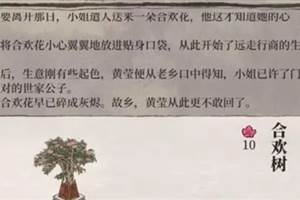 要离开那日，小姐遣人送来一朵合欢花，他这才知道她的心
将合欢花小心翼翼地放进贴身口袋，从此开始了远走行商的生
后，生意刚有些起色，黄莹便从老乡口中得知，小姐已许了门
对的世家公子。
合欢花早已碎成灰烬。故乡，黄莹从此更不敢回了。
合欢树
10